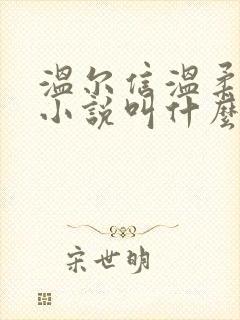 温尔信温柔
小说叫什麽
宋世明